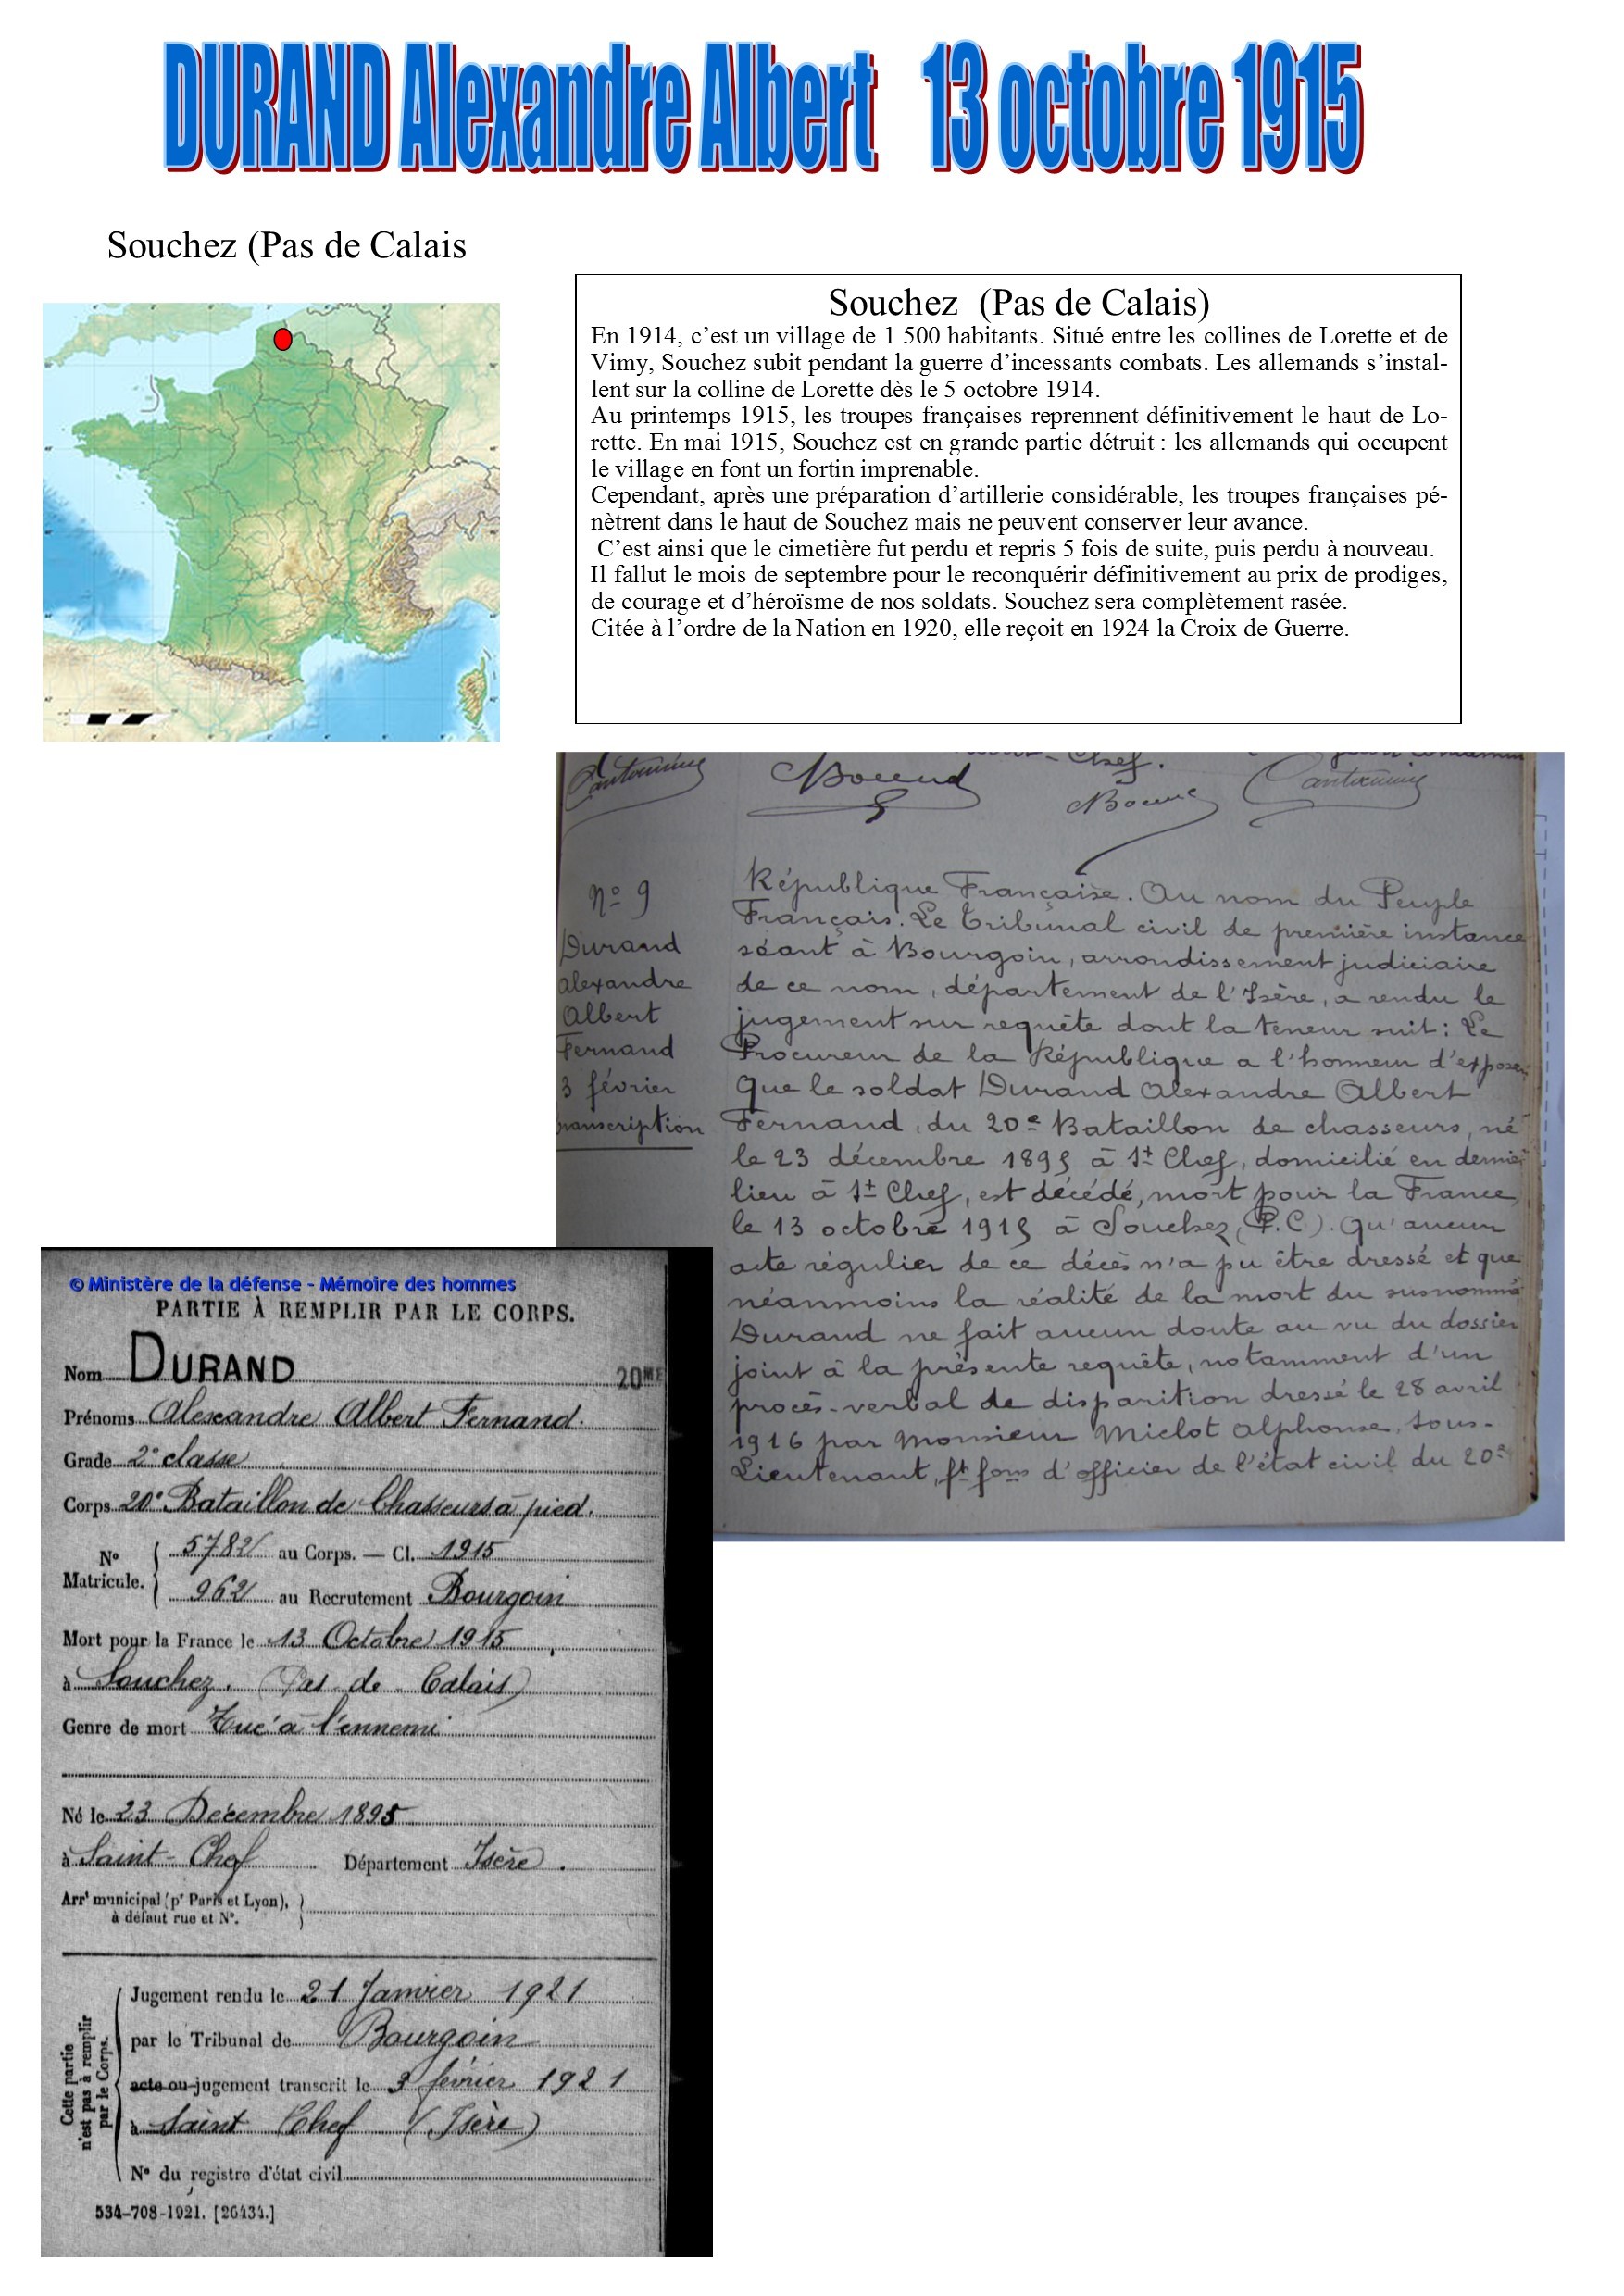 DURAND Alexandre Albert 13 octobre 1915
Souchez (Pas de Calais
Souchez (Pas de Calais)
En 1914, c’est un village de 1 500 habitants. Situé entre les collines de Lorette et de
Vimy, Souchez subit pendant la guerre d’incessants combats. Les allemands s’instal-
lent sur la colline de Lorette dès le 5 octobre 1914.
Au printemps 1915, les troupes françaises reprennent définitivement le haut de Lo-
rette. En mai 1915, Souchez est en grande partie détruit : les allemands qui occupent
le village en font un fortin imprenable.
Cependant, après une préparation d’artillerie considérable, les troupes françaises pé-
nètrent dans le haut de Souchez mais ne peuvent conserver leur avance.
C’est ainsi que le cimetière fut perdu et repris 5 fois de suite, puis perdu à nouveau.
Il fallut le mois de septembre pour le reconquérir définitivement au prix de prodiges,
de courage et d’héroïsme de nos soldats. Souchez sera complètement rasée.
Citée à l’ordre de la Nation en 1920, elle reçoit en 1924 la Croix de Guerre.
Chef.
N° 9
Durand
Alexandre
Albert
Fernand
3 février
transcription
République Française. Au nom du Peuple
Français. Le Tribunal civil de première instance
séant à Bourgoin, arrondissement judiciaire
de ce nom, département de l'Isère, a rendu le
jugement sur requête dont la teneur suit : Le
Procureur de la République a l'honneur d'exposer
Que le soldat Durand Alexandre Albert
Fernand, du 20e Bataillon de chasseurs, né
le 23 décembre 1895 à St Chef, domicilié en dernier
lieu à St Chef, est décédé, mort pour la France,
le 13 octobre 1915 à Souchez (P.C). Qu'aucun
acte régulier de ce décès n'a pu être dressé et que
néanmoins la réalité de la mort du susnommé
Durand ne fait aucun doute au vu du dossier
joint à la présente requête, notamment d'un
procès-verbal de disparition dressé le 28 avril
1916 par Monsieur Miclot Alphonse, Sous-
Lieutenant, ft fons d'officier de l'état civil du 20e
© Ministère de la défense - Mémoire des hommes
PARTIE À REMPLIR PAR LE CORPS.
Nom DURAND 20ME
Prénoms Alexandre Albert Fernand.
Grade 2e classe
Corps 20e Bataillon de Chasseurs à pied.
N° Matricule. 5782 au Corps. — Cl. 1915
962 au Recrutement Bourgoin
Mort pour la France le 13 Octobre 1915
à Souchez. (Pas de Calais)
Genre de mort Tué à l'ennemi
Né le 23 Décembre 1895
à Saint-Chef Département Isère.
Arrt municipal (pr Paris et Lyon),
à défaut rue et N°.
Cette partie n'est pas à remplir par le Corps.
Jugement rendu le 21 Janvier 1921
par le Tribunal de Bourgoin
acte ou jugement transcrit le 3 février 1921
à Saint Chef (Isère)
N° du registre d'état civil
534-708-1921. [26434.]